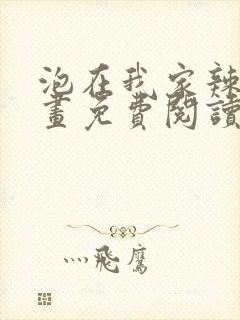 泡在我家辣
畫免費閱讀
灬飛鷹